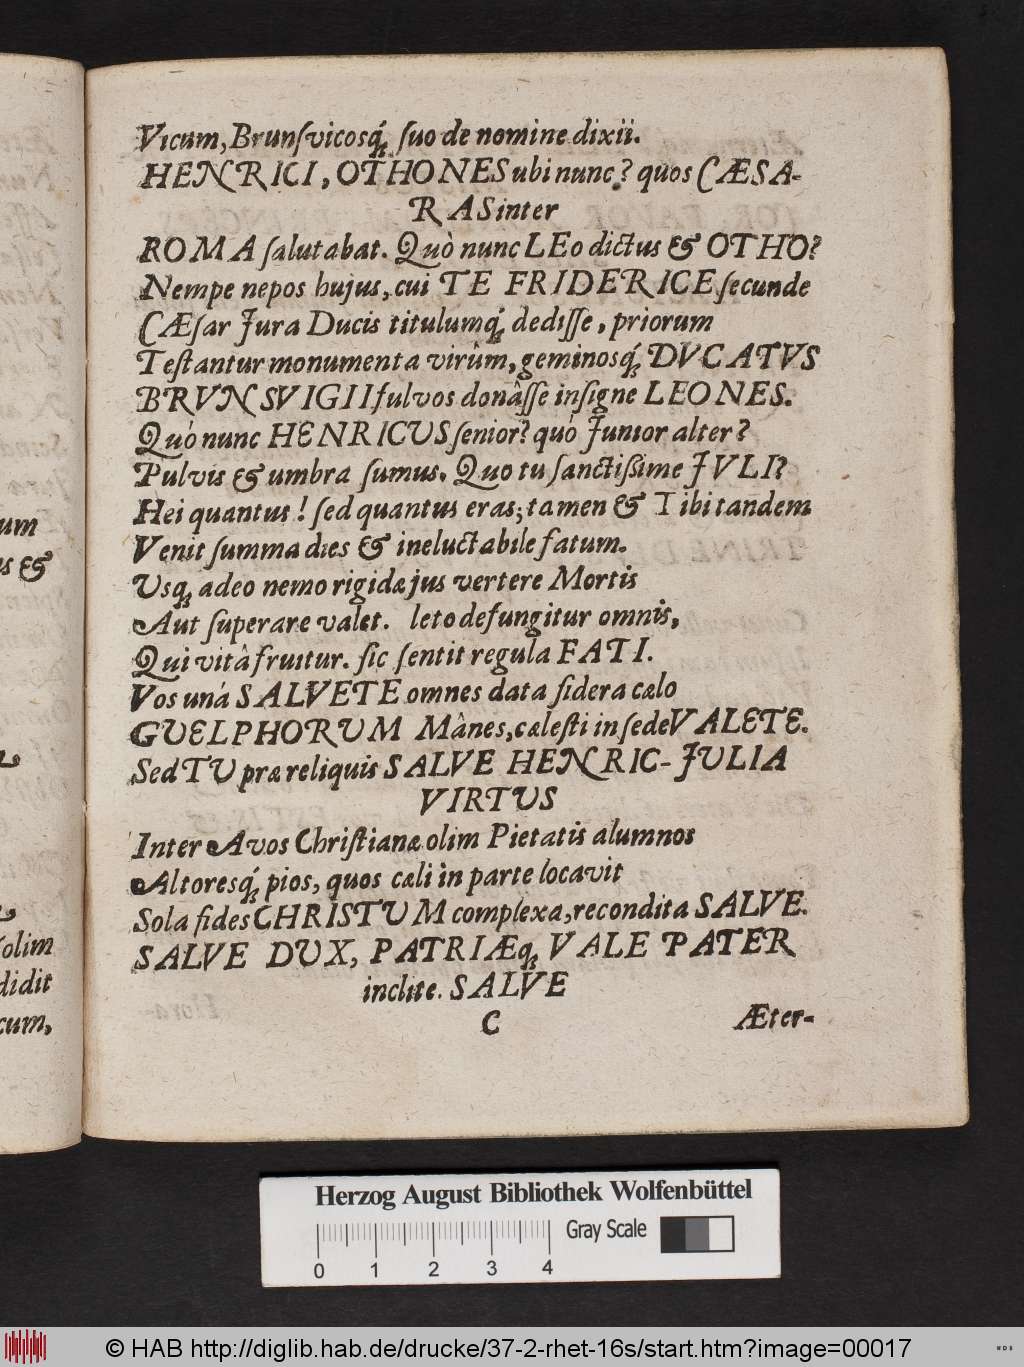 um
us &
olim
didit
cum,
Vicum, Brunſvicosq́; ſuo de nomine dixit.
HENRICI, OTHONES ubi nunc? quos CÆSA-
RAS inter
ROMA ſalutabat. Quò nunc LEo dictus & OTHO?
Nempe nepos hujus, cui TE FRIDERICE ſecunde
CÆſar Jura Ducis titulumq́; dediſſe, priorum
Teſtantur monumenta virûm, geminosq́; DVCATVS
BRVNSVIGII fulvos donâſſe inſigne LEONES.
Quò nunc HENRICUS ſenior? quò Junior alter?
Pulvis & umbra ſumus. Quo tu ſanctißime JVLI?
Hei quantus! ſed quantus eras; tamen & Tibi tandem
Venit ſumma dies & ineluctabile fatum.
Usq; adeo nemo rigidæ jus vertere Mortis
Aut ſuperare valet. leto defungitur omnis,
Qui vitâ fruitur. ſic ſentit regula FATI.
Vos unà SALVETE omnes data ſidera cælo
GUELPHORUM Mânes, cæleſti in ſede VALETE.
Sed TU præ reliquis SALVE HENRIC-JULIA
VIRTUS
Inter Avos Chriſtianæ olim Pietatis alumnos
Altoresq́; pios, quos cæli in parte locavit
Sola fides CHRISTUM complexa, recondita SALVE.
SALVE DUX, PATRIÆq; VALE PATER
inclite. SALVE
C Æter-
Herzog August Bibliothek Wolfenbüttel
Gray Scale
0 1 2 3 4
© HAB http://diglib.hab.de/drucke/37-2-rhet-16s/start.htm?image=00017